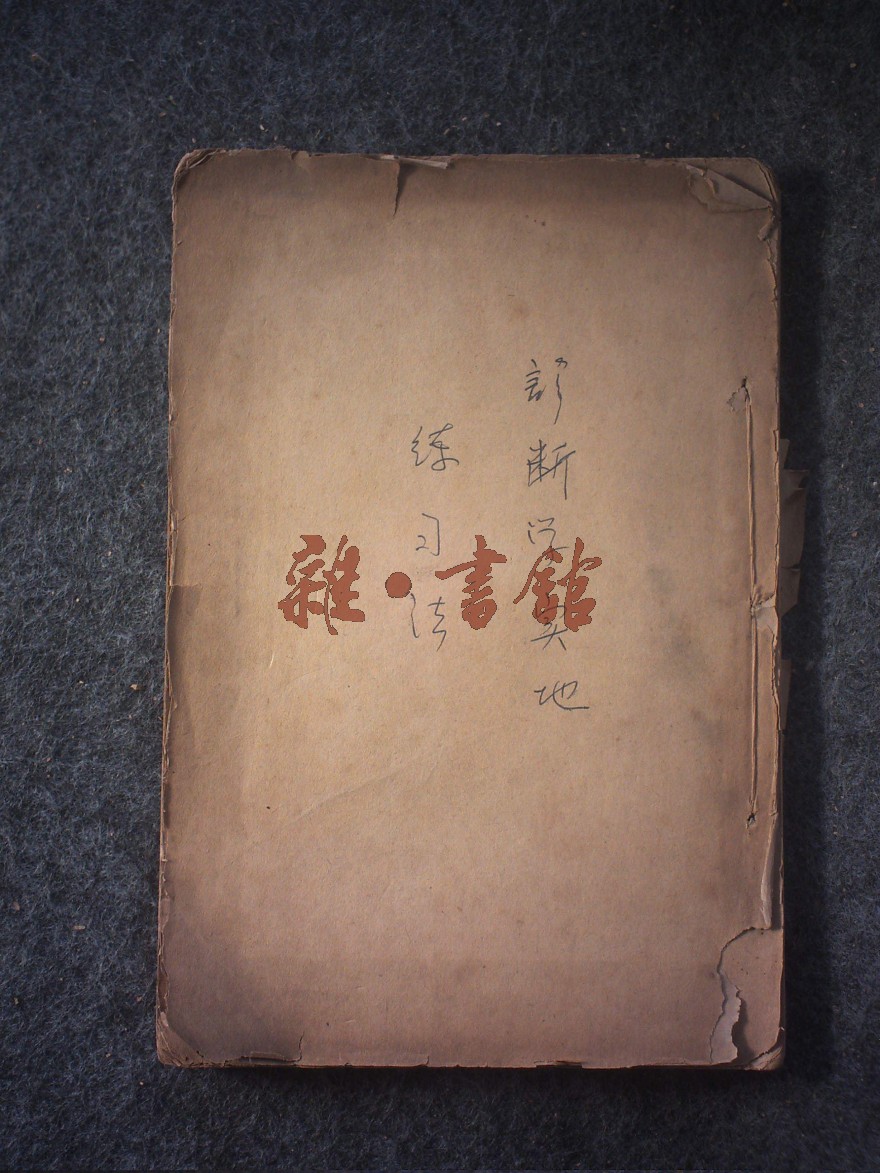 診断学实地
练习法
雜·書館